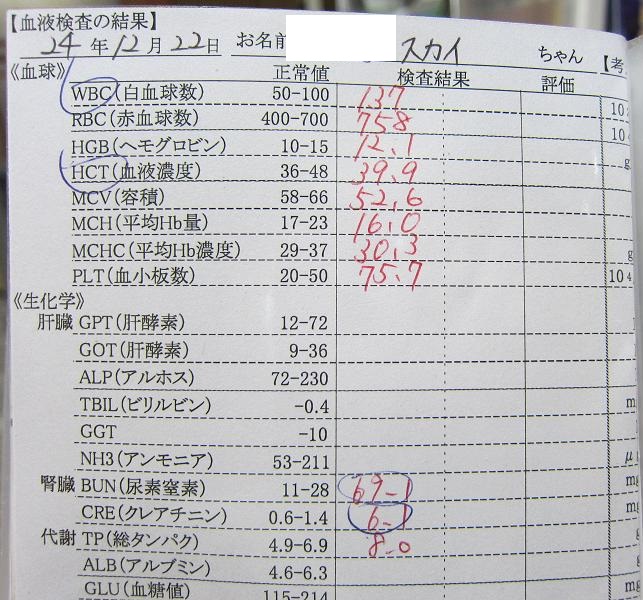 【血液検査の結果】
24年12月22日 お名前 スカイ ちゃん 【考
《血球》 正常値 検査結果 評価
WBC(白血球数) 50-100 137 10
RBC(赤血球数) 400-700 758 10
HGB(ヘモグロビン) 10-15 12.1 g
HCT(血液濃度) 36-48 39.9
MCV(容積) 58-66 52.6
MCH(平均Hb量) 17-23 16.0
MCHC(平均Hb濃度) 29-37 30.3 g
PLT(血小板数) 20-50 75.7 104
《生化学》
肝臓 GPT(肝酵素) 12-72
GOT(肝酵素) 9-36
ALP(アルホス) 72-230
TBIL(ビリルビン) -0.4 m
GGT -10
NH3(アンモニア) 53-211 μ
腎臓 BUN(尿素窒素) 11-28 69.1 mg
CRE(クレアチニン) 0.6-1.4 6.1 mg
代謝 TP(総タンパク) 4.9-6.9 8.0 g
ALB(アルブミン) 4.6-6.3 g
GLU(血糖値) 115-214 mg